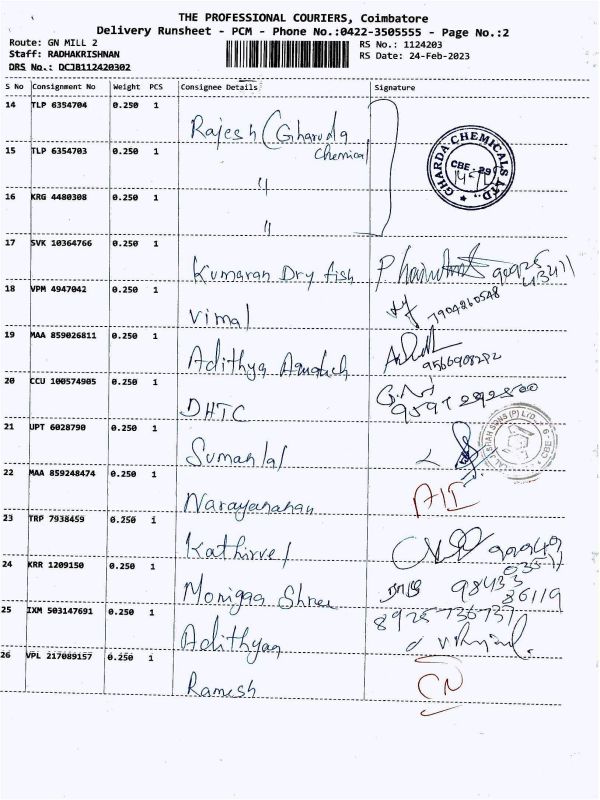 THE PROFESSIONAL COURIERS, Coimbatore
Delivery Runsheet - PCM - Phone No.:0422-3505555 - Page No.:2
Route: GN MILL 2
RS No.: 1124203
Staff: RADHAKRISHNAN
RS Date: 24-Feb-2023
DRS No.: DCJB112420302
S No Consignment No Weight PCS Consignee Details Signature
14 TLP 6354704 0.250 1 Rajesh (Gharuda
Chemical
GHARDA CHEMICALS LTD
CBE - 29
15 TLP 6354703 0.250 1 "
16 KRG 4480308 0.250 1 "
17 SVK 10364766 0.250 1 Kumaran Dry fish
18 VPM 4947042 0.250 1 Vimal 7904260548
19 MAA 859026811 0.250 1 Adithya
9566908292
20 CCU 100574905 0.250 1 DHTC
9597292800
21 UPT 6028790 0.250 1 Sumanlal
22 MAA 859248474 0.250 1 Narayanahan
23 TRP 7938459 0.250 1 Kathirvel
24 KRR 1209150 0.250 1 Monigaa Shree 98433
86119
25 IXM 503147691 0.250 1 Adithyan 8925736737
26 VPL 217089157 0.250 1 Ramesh CN